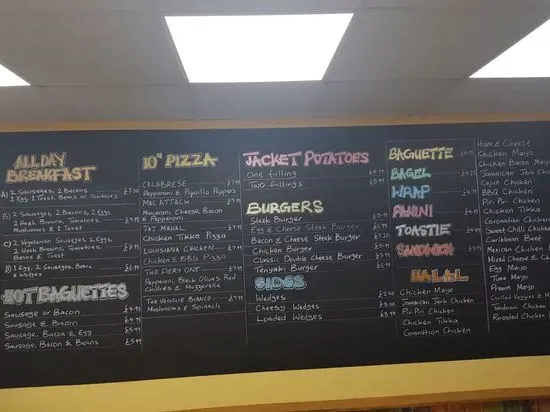 ALL DAY
BREAKFAST
A) 2 Sausages, 2 Bacons
1 Egg 1 Toast Beans or Tomatoes £7.50
B) 2 Sausages, 2 Bacons, 2 Eggs
2 Hash Browns, Tomatoes,
Mushrooms & 1 Toast
C) 2 Vegetarian Sausages, 2 Eggs,
2 Hash Browns, Tomatoes,
Beans & Toast
D) 1 Egg, 2 Sausages, Beans
& Wedges
HOT BAGUETTES
Sausage or Bacon
Sausage & Bacon
Sausage, Bacon & Egg
Sausage, Bacon & Beans
10" PIZZA
CALABRESE
Pepperoni & Piquillo Peppers
MAC ATTACK
Macaroni Cheese, Bacon
& Pepperoni
TAJ MAHAL
Chicken Tikka Pizza
LOUISIANA CHICKEN
Chicken & BBQ Pizza
THE FIERY ONE
Pepperoni, Black Olives, Red
Chillies & Mozzarella
THE VEGGIE BIANCO
Mushrooms & Spinach
JACKET POTATOES
One filling
Two fillings
BURGERS
Steak Burger
Egg & Cheese Steak Burger
Bacon & Cheese Steak Burger
Chicken Burger
Classic Double Cheese Burger
Teriyaki Burger
SIDES
Wedges £2.50
Cheesy Wedges £3.00
Loaded Wedges
BAGUETTE
BAGEL
WRAP
PANINI
TOASTIE
SANDWICH
HALAL
Chicken Mayo
Jamaican Jerk Chicken
Piri Piri Chicken
Chicken Tikka
Coronation Chicken
Ham & Cheese
Chicken Mayo
Chicken Bacon Mayo
Jamaican Jerk Chicken
Cajun Chicken
BBQ Chicken
Piri Piri Chicken
Chicken Tikka
Coronation Chicken
Sweet Chilli Chicken
Caribbean Beef
Mexican Chicken
Mixed Cheese &
Egg Mayo
Tuna Mayo
Prawn Mayo
Grilled Veggies &
Tandoori Chicken
Roasted Chicken